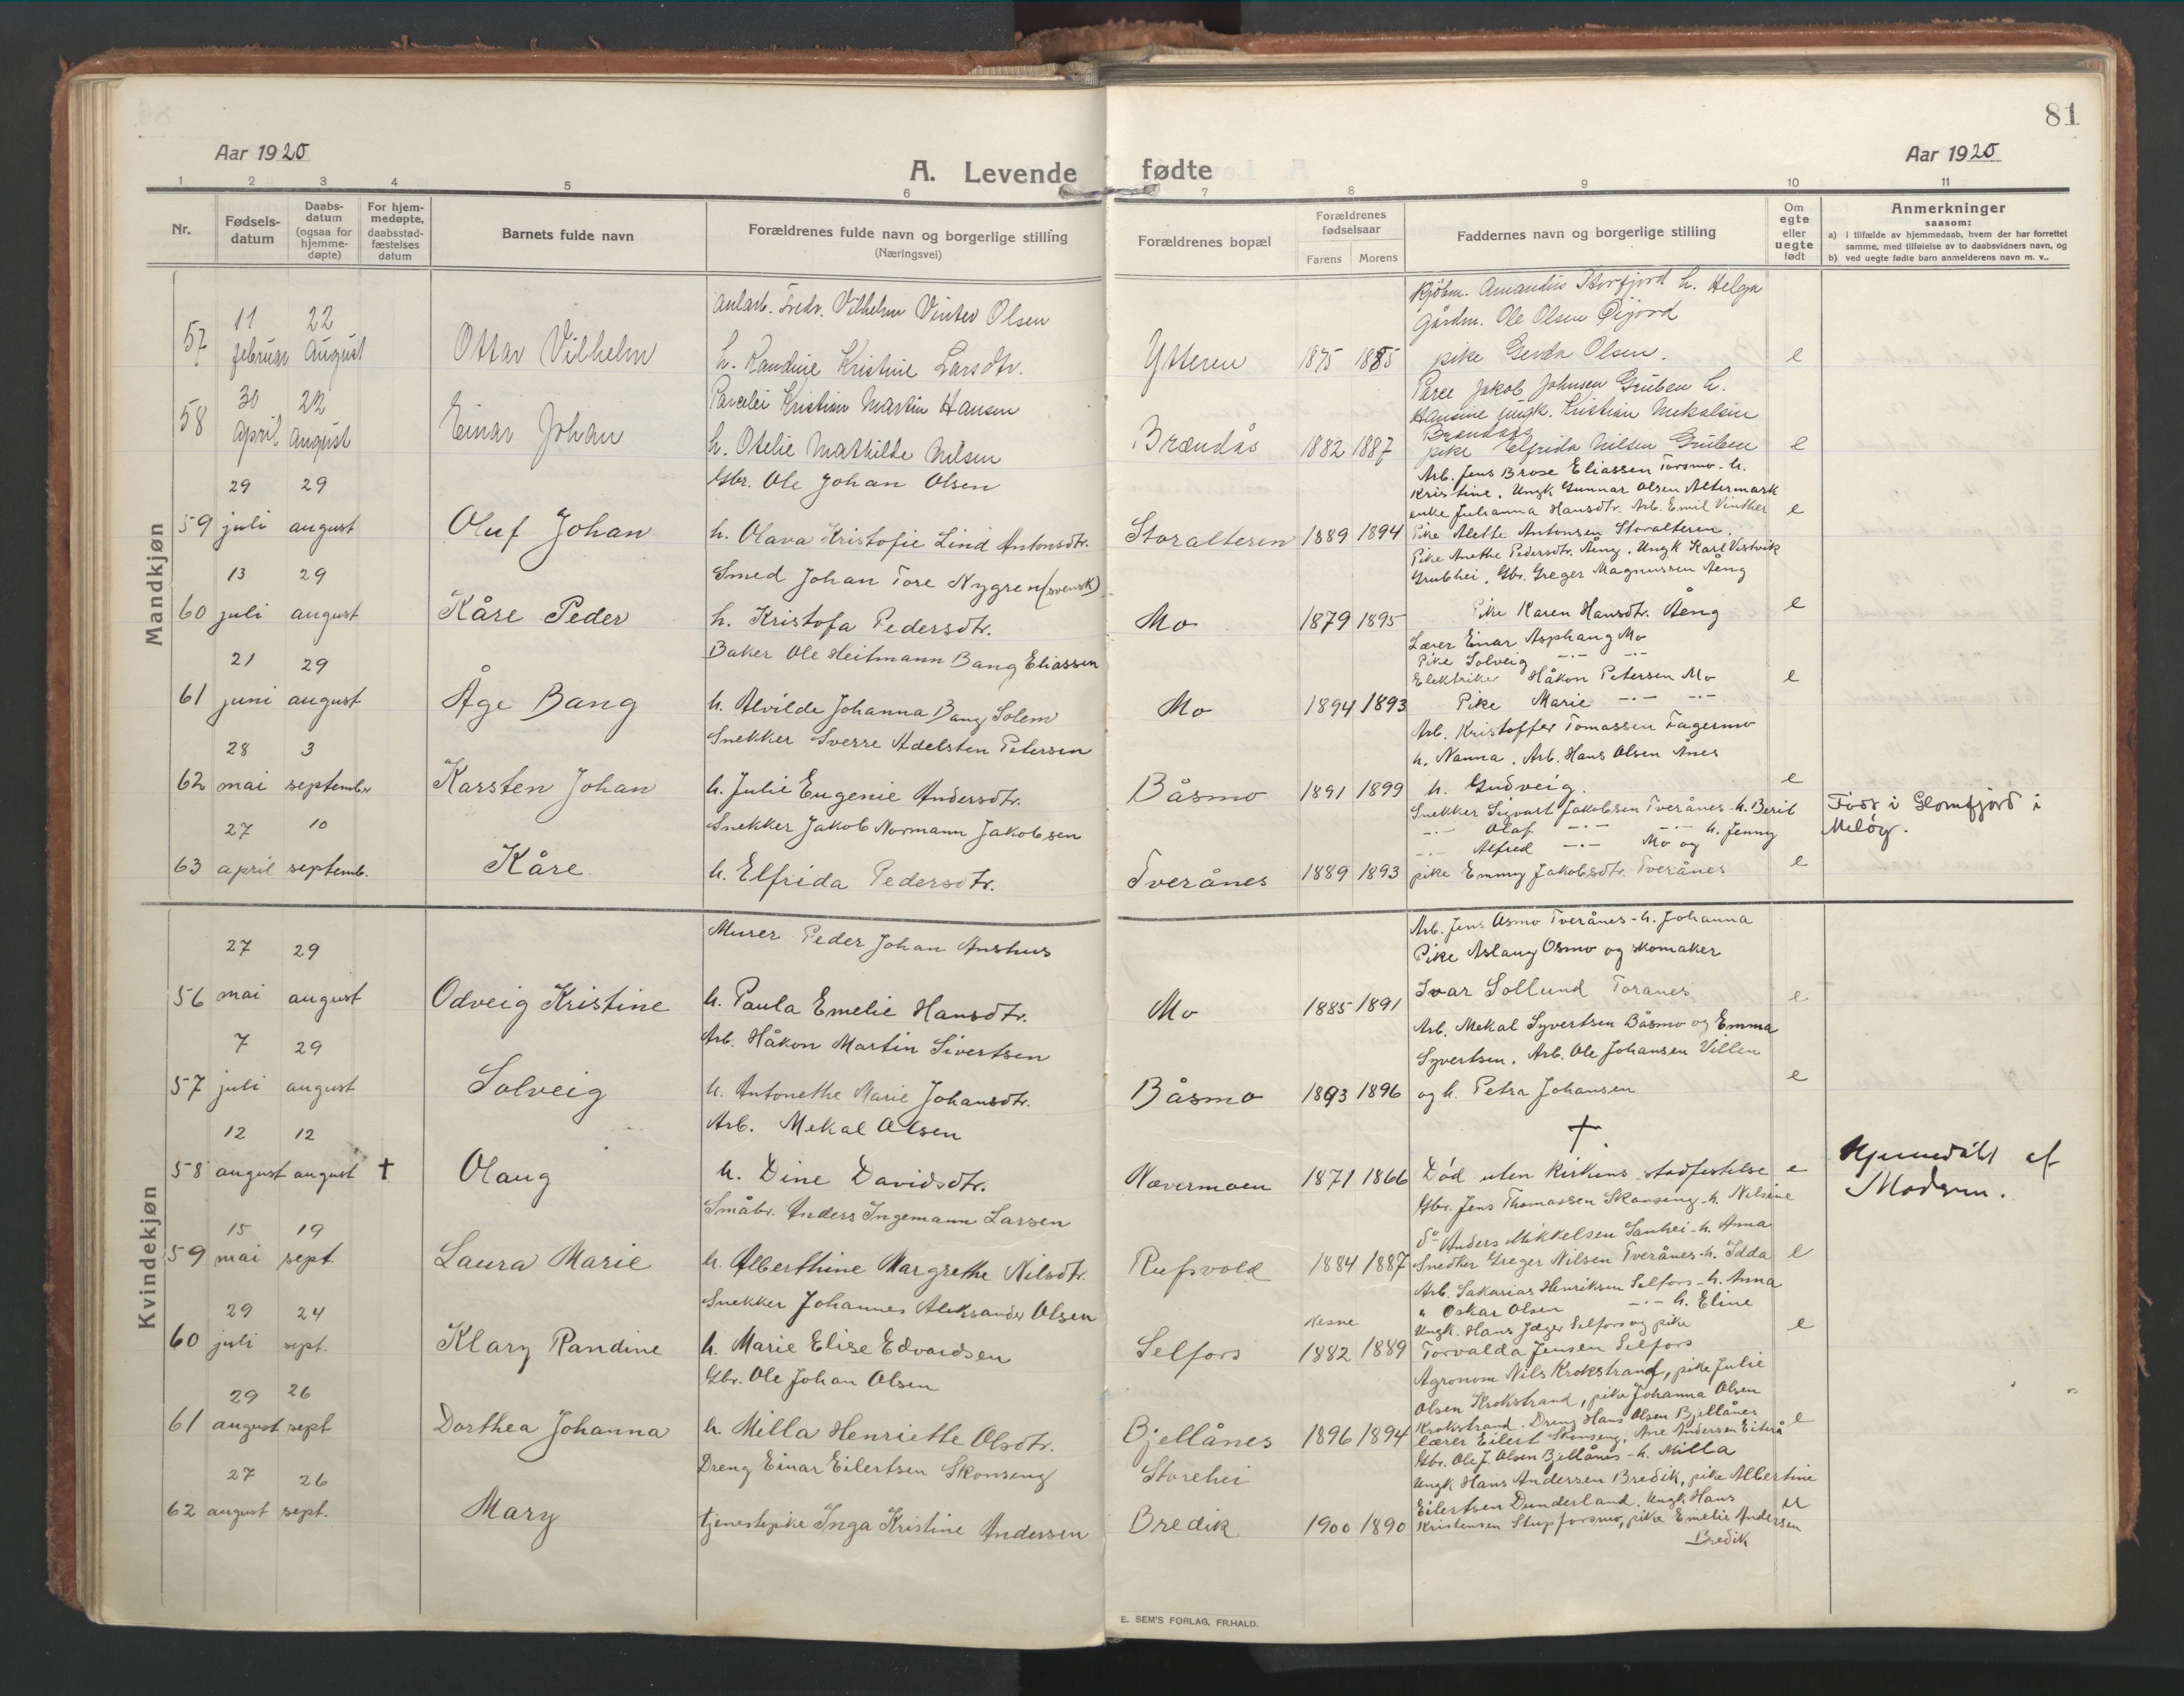 81
Aar 1920
A. Levende fødte
Aar 1920
1 2 3 4 5 6 7 8 9 10 11
Nr.
Fødsels-
datum
Daabs-
datum
(ogsaa for
hjemme-
døpte)
For hjem-
medøpte,
daabsstad-
fæstelses
datum
Barnets fulde navn
Forældrenes fulde navn og borgerlige stilling
(Næringsvei)
Forældrenes bopæl
Forældrenes
fødselsaar
Farens Morens
Faddernes navn og borgerlige stilling
Om
egte
eller
uegte
født
Anmerkninger
saasom:
a) i tilfælde av hjemmedaab, hvem der har forrettet
samme, med tilføielse av to daabsvidners navn, og
b) ved uegte fødte barn anmelderens navn m. v..
Mandkjøn
57
11 februar
22 August
Ottar Vilhelm
Anlarb. Fredr. Vilhelm Vinter Olsen
h. Randine Kristine Larsdtr.
Ytteren
1875 1885
Kjøbm. Amandus Storfjord h. Helga
Gårdm. Ole Olsen Øijord
pike Gerda Olsen.
e
58
30 April
22 August
Einar Johan
Parcelei Kristian Martin Hansen
h. Otelie Mathilde Nilsen
Brændås
1882 1887
Parce Jakob Johnsen Gruben h.
Hansine ungk. Kristian Mekalsen
Brændås
pike Elfrida Nilsen Gruben
e
59
29 juli
29 august
Oluf Johan
Gbr. Ole Johan Olsen
h. Olava Kristofie Lind Antonsdtr.
Storalteren
1889 1894
Arb. Jens Brose Eliassen Torsmo - h.
Kristine. Ungk Gunnar Olsen Altermark
enke Julianna Hansdtr. Arb. Emil Vinther
Pike Alette Antonsen Storalteren.
e
60
13 juli
29 august
Kåre Peder
Smed Johan Tore Nygren (svensk)
h. Kristofa Pedersdtr.
Mo
1879 1895
Pike Anethe Pedersdtr. Åeng. Ungk Karl Vestvik
Grubhei, Gbr. Greger Magnussen Åeng
Pike Karen Hansdtr. Åeng
e
61
21 juni
29 august
Åge Bang
Baker Ole Heitmann Bang Eliassen
h. Alvilde Johanna Bang Solem
Mo
1894 1893
Lærer Einar Asphaug Mo
Pike Solveig -·- -·-
Elektriker Håkon Petersen Mo
Pike Marie -·- -·-
e
62
28 mai
3 september
Karsten Johan
Snekker Sverre Adelsten Petersen
h. Julie Eugenie Andersdtr.
Båsmo
1891 1899
Arb. Kristoffer Tomassen Fagermo
h. Nanna. Arb. Hans Olsen Ånes
h. Gudveig.
e
Født i Glomfjord i
Meløy.
63
27 april
10 septemb.
Kåre
Snekker Jakob Normann Jakobsen
h. Elfrida Pedersdtr.
Tverånes
1889 1893
Snekker Sigvart Jakobsen Tverånes - h. Berit
-·- Olaf -·- -·- h. Jenny
-·- Alfred -·- Mo og
pike Emmy Jakobsdtr. Tverånes
e
Kvindekjøn
56
27 mai
29 august
Odveig Kristine
Murer Peder Johan Anshus
h. Paula Emelie Hansdtr.
Mo
1885 1891
Arb. Jens Osmo Tverånes - h. Johanna
Pike Aslaug Osmo og skomaker
Ivar Sollund Toranes
e
57
7 juli
29 august
Solveig
Arb. Håkon Martin Sivertsen
h. Antonethe Marie Johansdtr.
Båsmo
1893 1896
Arb. Mekal Syvertsen Båsmo og Emma
Syvertsen. Arb. Ole Johansen Villen
og h. Petra Johansen
e
58
12 august
12 august
†
Olaug
Arb. Mekal Olsen
h. Dine Davidsdtr.
Nævermoen
1871 1866
†.
Død uten kirkens stadfestelse
e
Hjemmedøbt af
Modren.
59
15 mai
19 sept.
Laura Marie
Småbr. Anders Ingemann Larsen
h. Alberthine Margrethe Nilsdtr.
Rufsvold
1884 1887
Gbr. Jens Thomassen Skonseng - h. Nilsine
do Anders Mikkelsen Sanhei - h. Anna
Snedker Greger Nilsen Tverånes - h. Idda
e
60
29 juli
24 sept.
Klary Randine
Snekker Johannes Aleksander Olsen
h. Marie Elise Edvardsen
Selfors
Nesne
1882 1889
Arb. Sakarias Henriksen Selfors - h. Anna
" Oskar Olsen -·- h. Eline
Ungk. Hans Jæger Selfors og pike
Torvalda Jensen Selfors
e
61
29 august
26 sept
Dorthea Johanna
Gbr. Ole Johan Olsen
h. Milla Henriette Olsdtr.
Bjellånes
1896 1894
Agronom Nils Krokstrand, pike Julie
Olsen Krokstrand, pike Johanna Olsen
Krokstrand. Dreng Hans Olsen Bjellånes
lærer Eilert Skonseng, Are Andersen Eiterå
Gbr. Ole J. Olsen Bjellånes - h. Milla
e
62
27 august
26 sept.
Mary
Dreng Einar Eilertsen Skonseng
tjenestepike Inga Kristine Andersen
Storehei
Bredik
1900 1890
Ungk Hans Andersen Bredik, pike Albertine
Eilertsen Dunderland. Ungk Hans
Kristensen Stupforsmo, pike Emelie Andersen
Bredik
u
E. SEM'S FORLAG, FR.HALD.